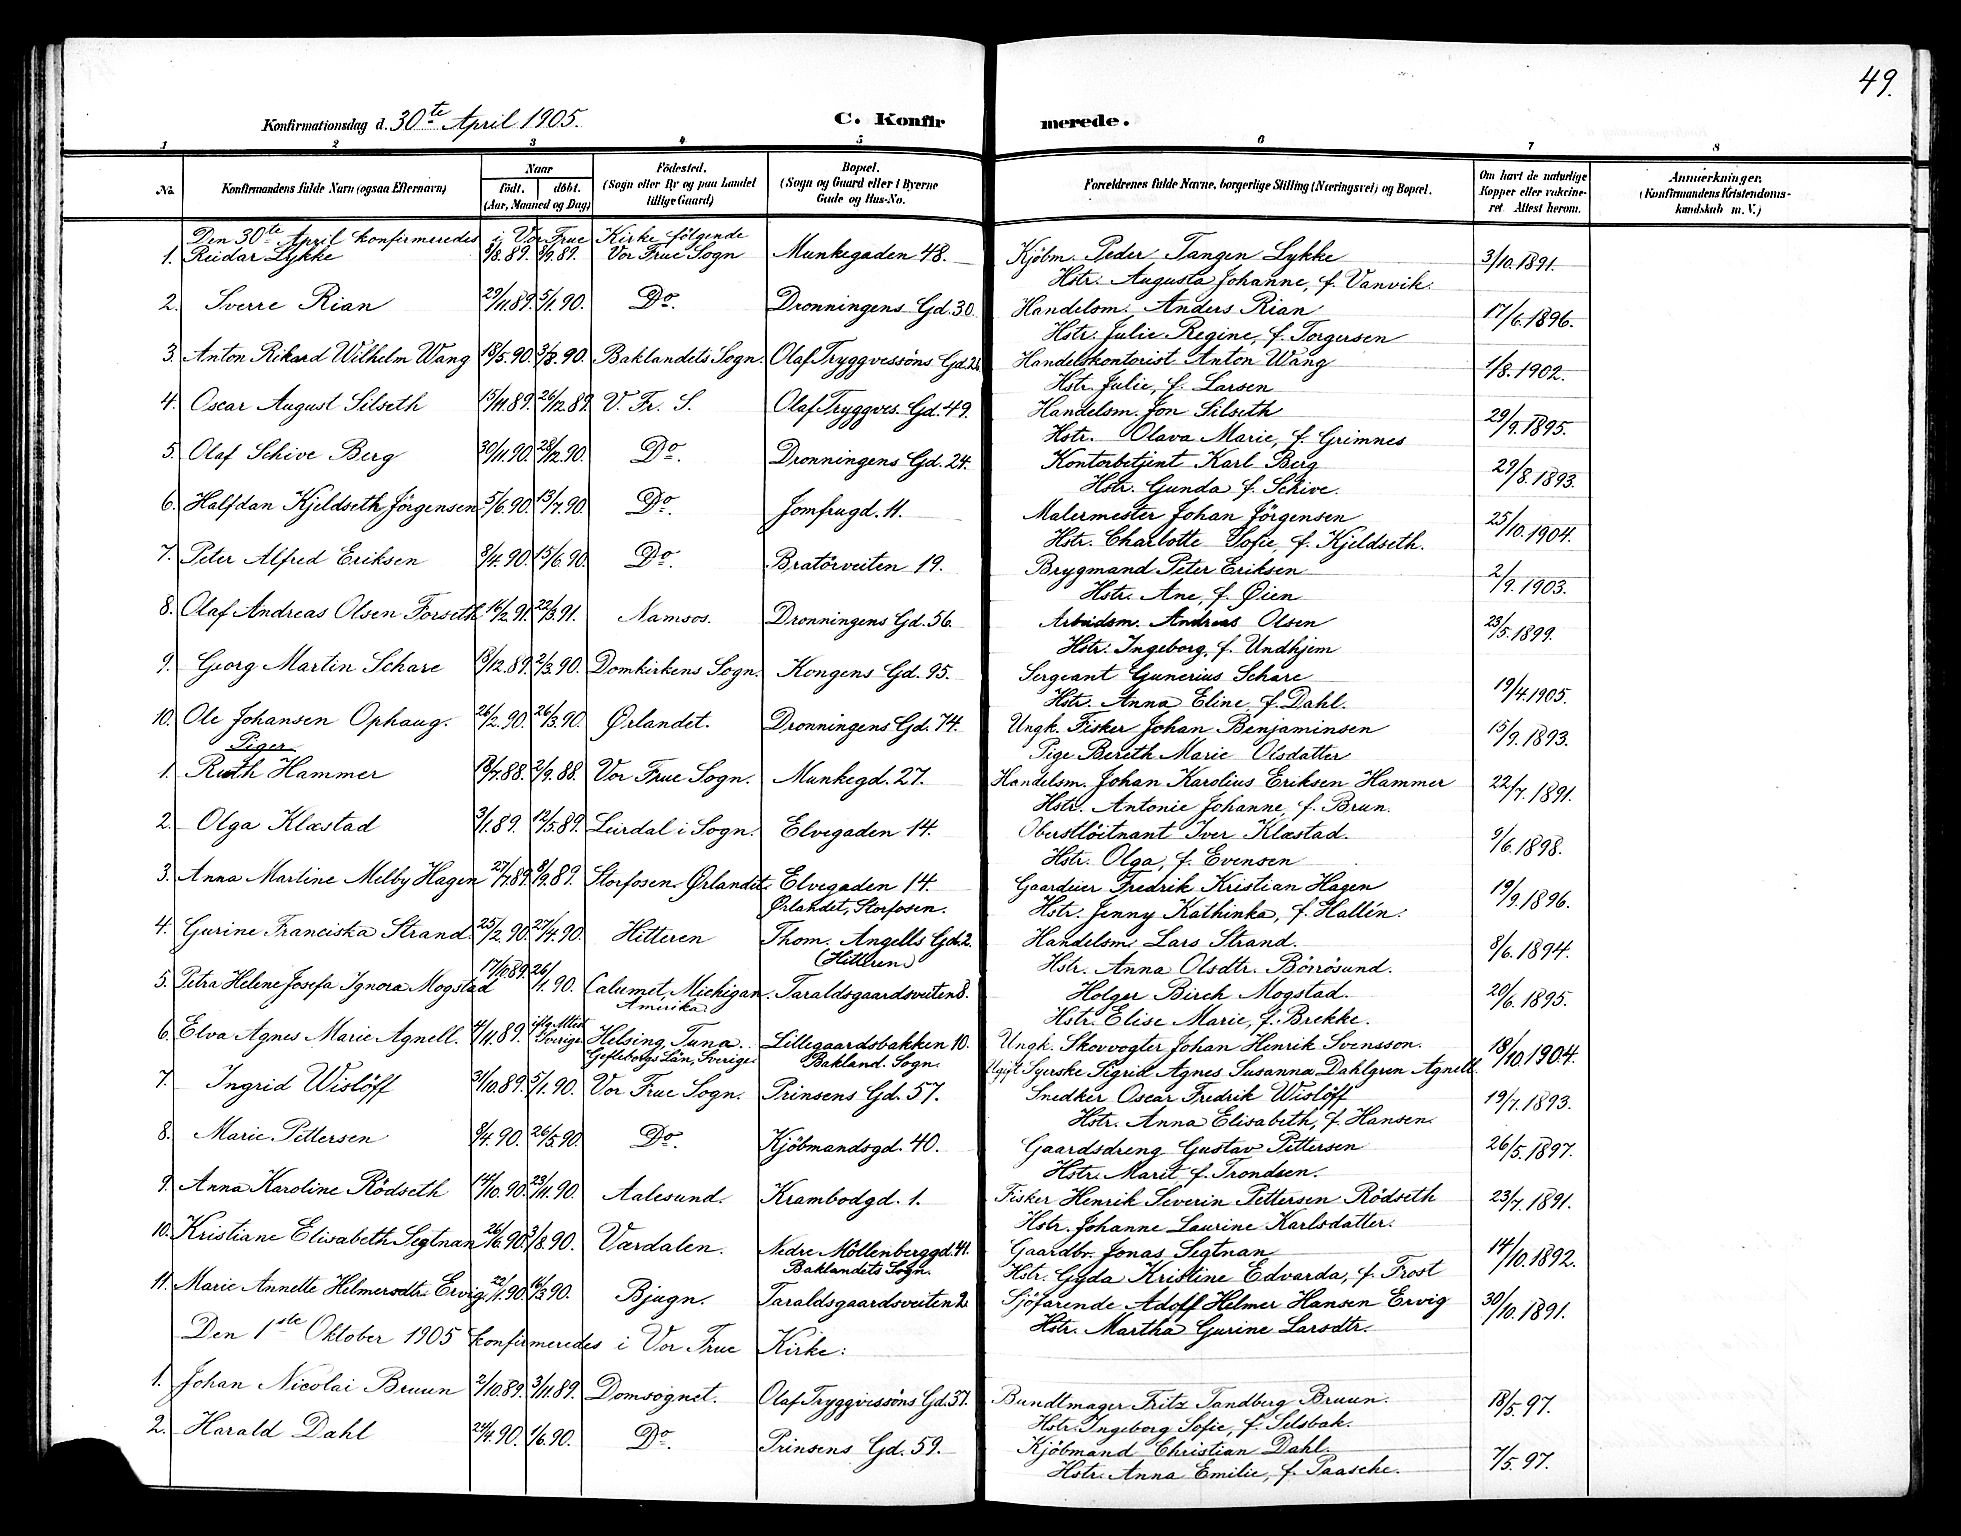 49.
Konfirmationsdag d. 30te April 1905.
C. Konfirmerede.
1 2 3 4 5 6 7 8
No. Konfirmandens fulde Navn (ogsaa Efternavn) Naar født. døbt. (Aar, Maaned og Dag) Fødested. (Sogn eller By og paa Landet tillige Gaard) Bopæl. (Sogn og Gaard eller i Byerne Gade og Hus-No. Forældrenes fulde Navne, borgerlige Stilling (Næringsvei) og Bopæl. Om havt de naturlige Kopper eller vaccineret. Attest herom. Anmærkninger. (Konfirmandens Kristendomskundskab m. V.)
Den 30te April konfirmeredes i Vor Frue Kirke følgende
1. Reidar Lykke 8/9.89. Vor Frue Sogn Munkegaden 48. Kjöbm. Peder Tangen Lykke 3/10.1891.
Hstr. Augusta Johanne, f. Vanvik.
2. Sverre Rian 29/11.89. 5/1.90. Do. Dronningens Gd. 30. Handelsm. Anders Rian 17/6.1896.
Hstr. Julie Regine, f. Torgersen
3. Anton Rikard Wilhelm Wang 18/5.90. 3/8.90. Baklandets Sogn. Olaf Tryggvessöns Gd. Handelskontorist Anton Wang 1/8.1902.
Hstr. Julie, f. Larsen
4. Oscar August Silseth 15/11.89. 26/12.89. V. Fr. S. Olaf Tryggves. Gd. 49. Handelsm. Jon Silseth 29/9.1895.
Hstr. Olava Marie, f. Grimnes
5. Olaf Schive Berg 30/11.90. 28/12.90. Do. Dronningens Gd. 24. Kontorbetjent Karl Berg 29/8.1893.
Hstr. Gunda f. Schive.
6. Halfdan Kjeldseth Jörgensen 5/6.90. 13/7.90. Do. Jomfrugd. 11. Malermester Johan Jörgensen 25/10.1904.
Hstr. Charlotte Sofie, f. Kjeldseth.
7. Peter Alfred Eriksen 8/4.90. 15/6.90. Do. Bratörveiten 19. Brygmand Peter Eriksen 2/9.1903.
Hstr. Ane, f. Øien
8. Olaf Andreas Olsen Forseth 16/2.91. 22/3.91. Namsos. Dronningens Gd. 56. Arbeidsm. Andreas Olsen 23/5.1899.
Hstr. Ingeborg, f. Undhjem
9. Georg Martin Schare 13/12.89. 2/3.90. Domkirkens Sogn. Kongens Gd. 95. Sergeant Gunerius Schare 19/4.1905.
Hstr. Anna Eline, f. Dahl.
10. Ole Johansen Ophaug. 26/2.90. 26/3.90. Ørlandet. Dronningens Gd. 74. Ungk. Fisker Johan Benjaminsen 15/9.1893.
Pige Bereth Marie Olsdatter
Piger
1. Ruth Hammer 18/7.88. 2/9.88. Vor Frue Sogn. Munkegd. 27. Handelsm. Johan Karolius Eriksen Hammer 22/7.1891.
Hstr. Antonie Johanne, f. Brun.
2. Olga Klæstad 3/1.89. 12/5.89. Leirdal i Sogn. Elvegaden 14. Oberstlöitnant Iver Klæstad. 9/6.1898.
Hstr. Olga, f. Evensen
3. Anna Martine Melby Hagen 27/7.89. 8/9.89. Storfosen. Ørlandet. Elvegaden 14. Gaardeier Fredrik Kristian Hagen 19/9.1896.
Ørlandet, Storfosen. Hstr. Jenny Kathinka, f. Hallén.
4. Gurine Franciska Strand. 25/2.90. 27/4.90. Hitteren Thom. Angells Gd. 2. Handelsm. Lars Strand. 8/6.1894.
(Hitteren) Hstr. Anna Olsdtr. Börrösund.
5. Petra Helene Josefa Ignora Mogstad 17/10.89. 26/1.90. Calumet, Michigan. Taraldsgaardsveiten 8. Holger Birch Mogstad. 20/6.1895.
Amerika. Hstr. Elise Marie, f. Brekke.
6. Elva Agnes Marie Agnell. 4/11.89. iflg. Attest Sverige Helsing, Tuna. Lillegaardsbakken 10. Ungk. Skovvogter Johan Henrik Svensson. 18/10.1904.
Gefleborgs Län, Sverige Bakland. Sogn. Ugift Syerske Sigrid Agnes Susanna Dahlgren Agnell.
7. Ingrid Wislöff 31/10.89. 5/1.90. Vor Frue Sogn. Prinsens Gd. 57. Snedker Oscar Fredrik Wislöff 19/7.1893.
Hstr. Anna Elisabeth, f. Hansen.
8. Marie Pettersen 8/4.90. 26/5.90. Do. Kjöbmandsgd. 40. Gaardsdreng Gustav Pettersen 26/5.1897.
Hstr. Marit f. Trondsen.
9. Anna Karoline Rödseth 14/10.90. 23/11.90. Aalesund. Krambodgd. 1. Fisker Henrik Severin Pettersen Rödseth 23/7.1891.
Hstr. Johanne Laurine Karlsdatter.
10. Kristiane Elisabeth Segtnan 26/6.90. 3/8.90. Værdalen. Nedre Möllenberggd. 41. Gaardbr. Jonas Segtnan 14/10.1892.
Baklandets Sogn. Hstr. Gyda Kristine Edvarda, f. Frost
11. Marie Annette Helmersdtr. Ervig 22/1.90. 16/3.90. Bjugn. Taraldsgaardsveiten 2. Sjöfarende Adolf Helmer Hansen Ervig 30/10.1891.
Hstr. Martha Gurine Larsdtr.
Den 1ste Oktober 1905 konfirmeredes i Vor Frue Kirke:
1. Johan Nicolai Bruun 2/10.89. 3/11.89. Domsognet. Olaf Tryggvessöns Gd. 37. Bundtmager Fritz Tandberg Bruun. 18/5.97.
Hstr. Ingeborg Sofie, f. Selsbak.
2. Harald Dahl 24/4.90. 1/6.90. Do. Prinsens Gd. 59. Kjöbmand Christian Dahl. 7/5.97.
Hstr. Anna Emilie, f. Paasche.